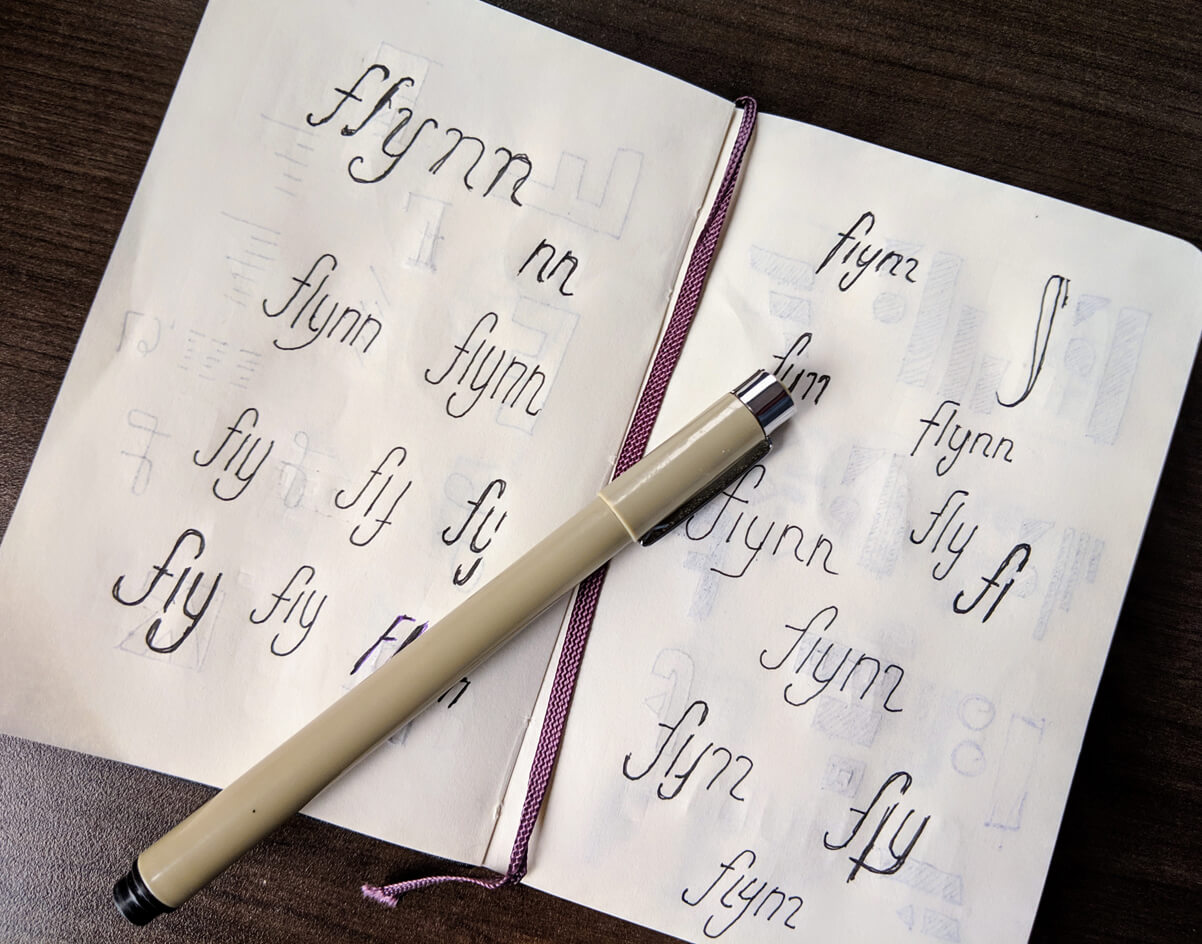 flynn
nn
flynn
flynn
fly
fly
fly
fly
fly
Fl
n
flynn
f
flynn
flynn
fly
flynn
fl
flynn
flynn
fly
flynn